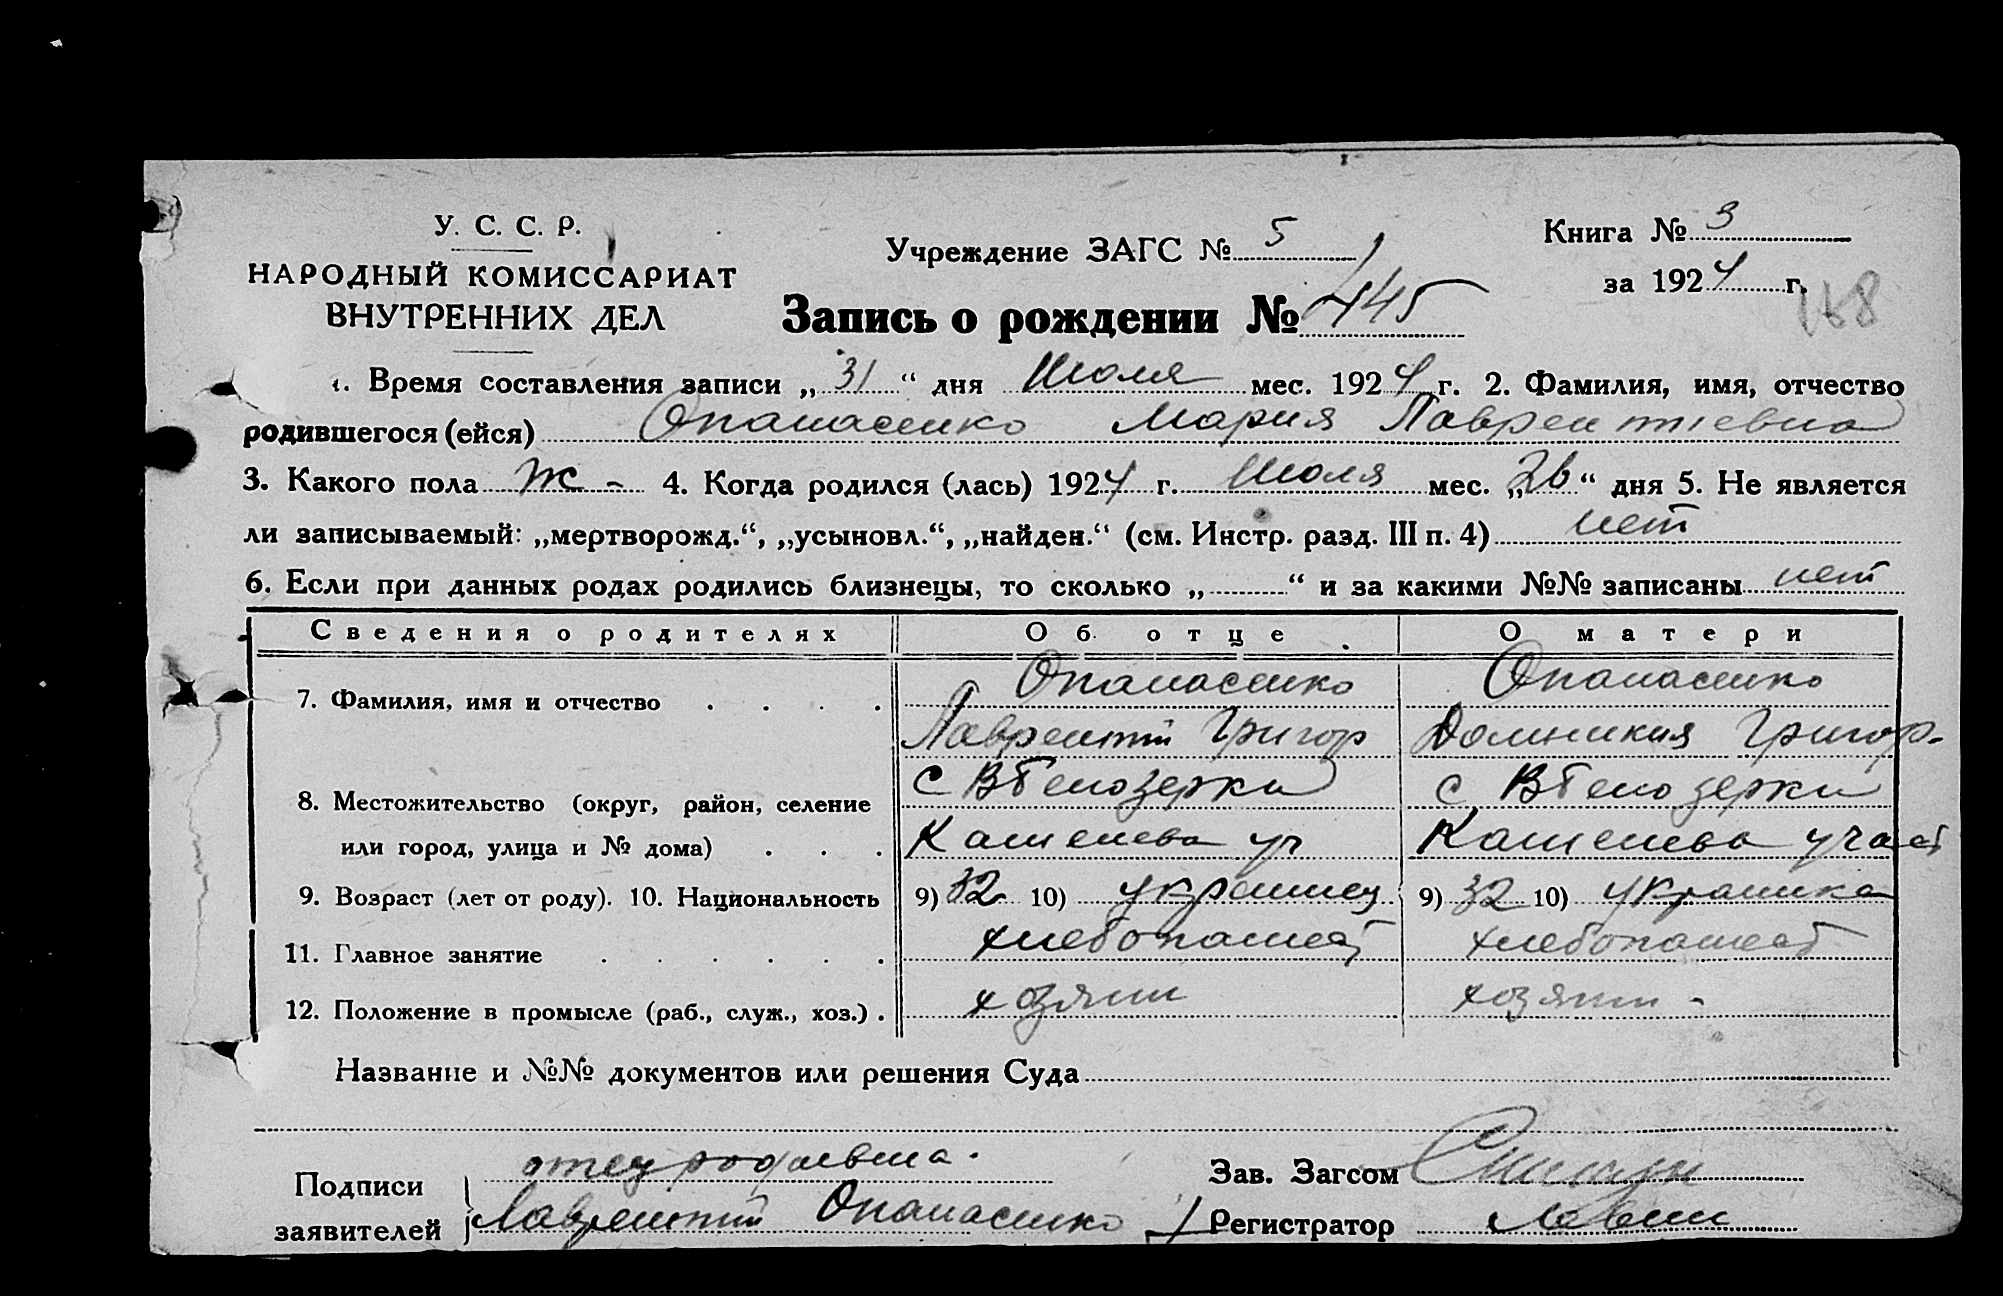 У. С. С. Р.
НАРОДНЫЙ КОМИССАРИАТ
ВНУТРЕННИХ ДЕЛ
Учреждение ЗАГС № 5
Книга № 3
за 1924 г.
168
Запись о рождении № 445
1. Время составления записи „31“ дня Июля мес. 1924 г. 2. Фамилия, имя, отчество
родившегося (ейся) Опанасенко Мария Лаврентиевна
3. Какого пола ж - 4. Когда родился (лась) 1924 г. Июля мес. „26“ дня 5. Не является
ли записываемый: „мертворожд.“, „усыновл.“, „найден.“ (см. Инстр. разд. III п. 4) нет
6. Если при данных родах родились близнецы, то сколько „ “ и за какими №№ записаны нет
Сведения о родителях Об отце О матери
7. Фамилия, имя и отчество Опанасенко Опанасенко
Лаврентий Григор Домникия Григор.
8. Местожительство (округ, район, селение с В Белозерки с В Белозерки
или город, улица и № дома) Каменева уч Каменева участ
9. Возраст (лет от роду). 10. Национальность 9) 32 10) украинец 9) 32 10) украинка
11. Главное занятие хлебопашест хлебопашест
12. Положение в промысле (раб., служ., хоз.) хозяин хозяин -
Название и №№ документов или решения Суда
Подписи заявителей
отец родившегося.
Лаврентий Опанасенко
Зав. Загсом
Регистратор Левин